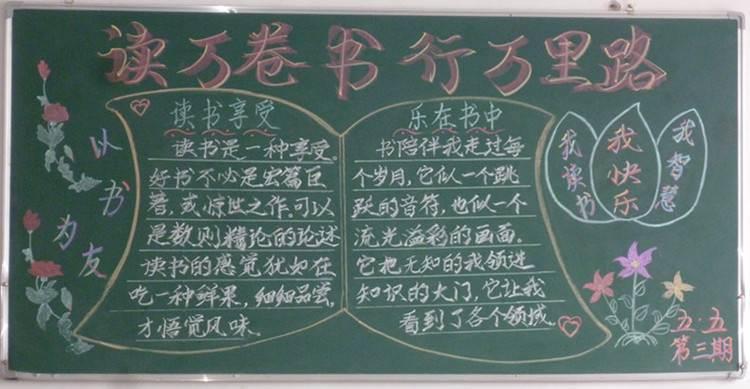 读万卷书行万里路
以书为友
读书享受
读书是一种享受。
好书不必是宏篇巨
著,或惊世之作。可以
是数则精论的论述
读书的感觉犹如在
吃一种鲜果,细细品尝,
才悟觉风味。
乐在书中
书陪伴我走过每
个岁月,它似一个跳
跃的音符,也似一个
流光溢彩的画面。
它把无知的我领进
知识的大门,它让我
看到了各个领域。
我读书
我快乐
我智慧
五·五
第三期